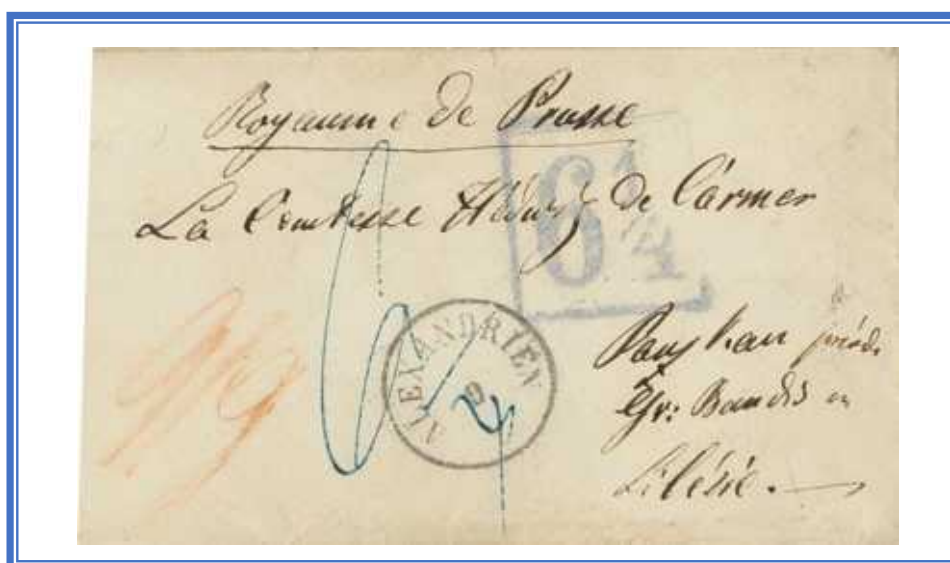 Royaume de Prusse
6 1/4
La Comtesse Hedwig de Carmer
6
ALEXANDRIEN
près de
Gr: Baudis en
Silésie.